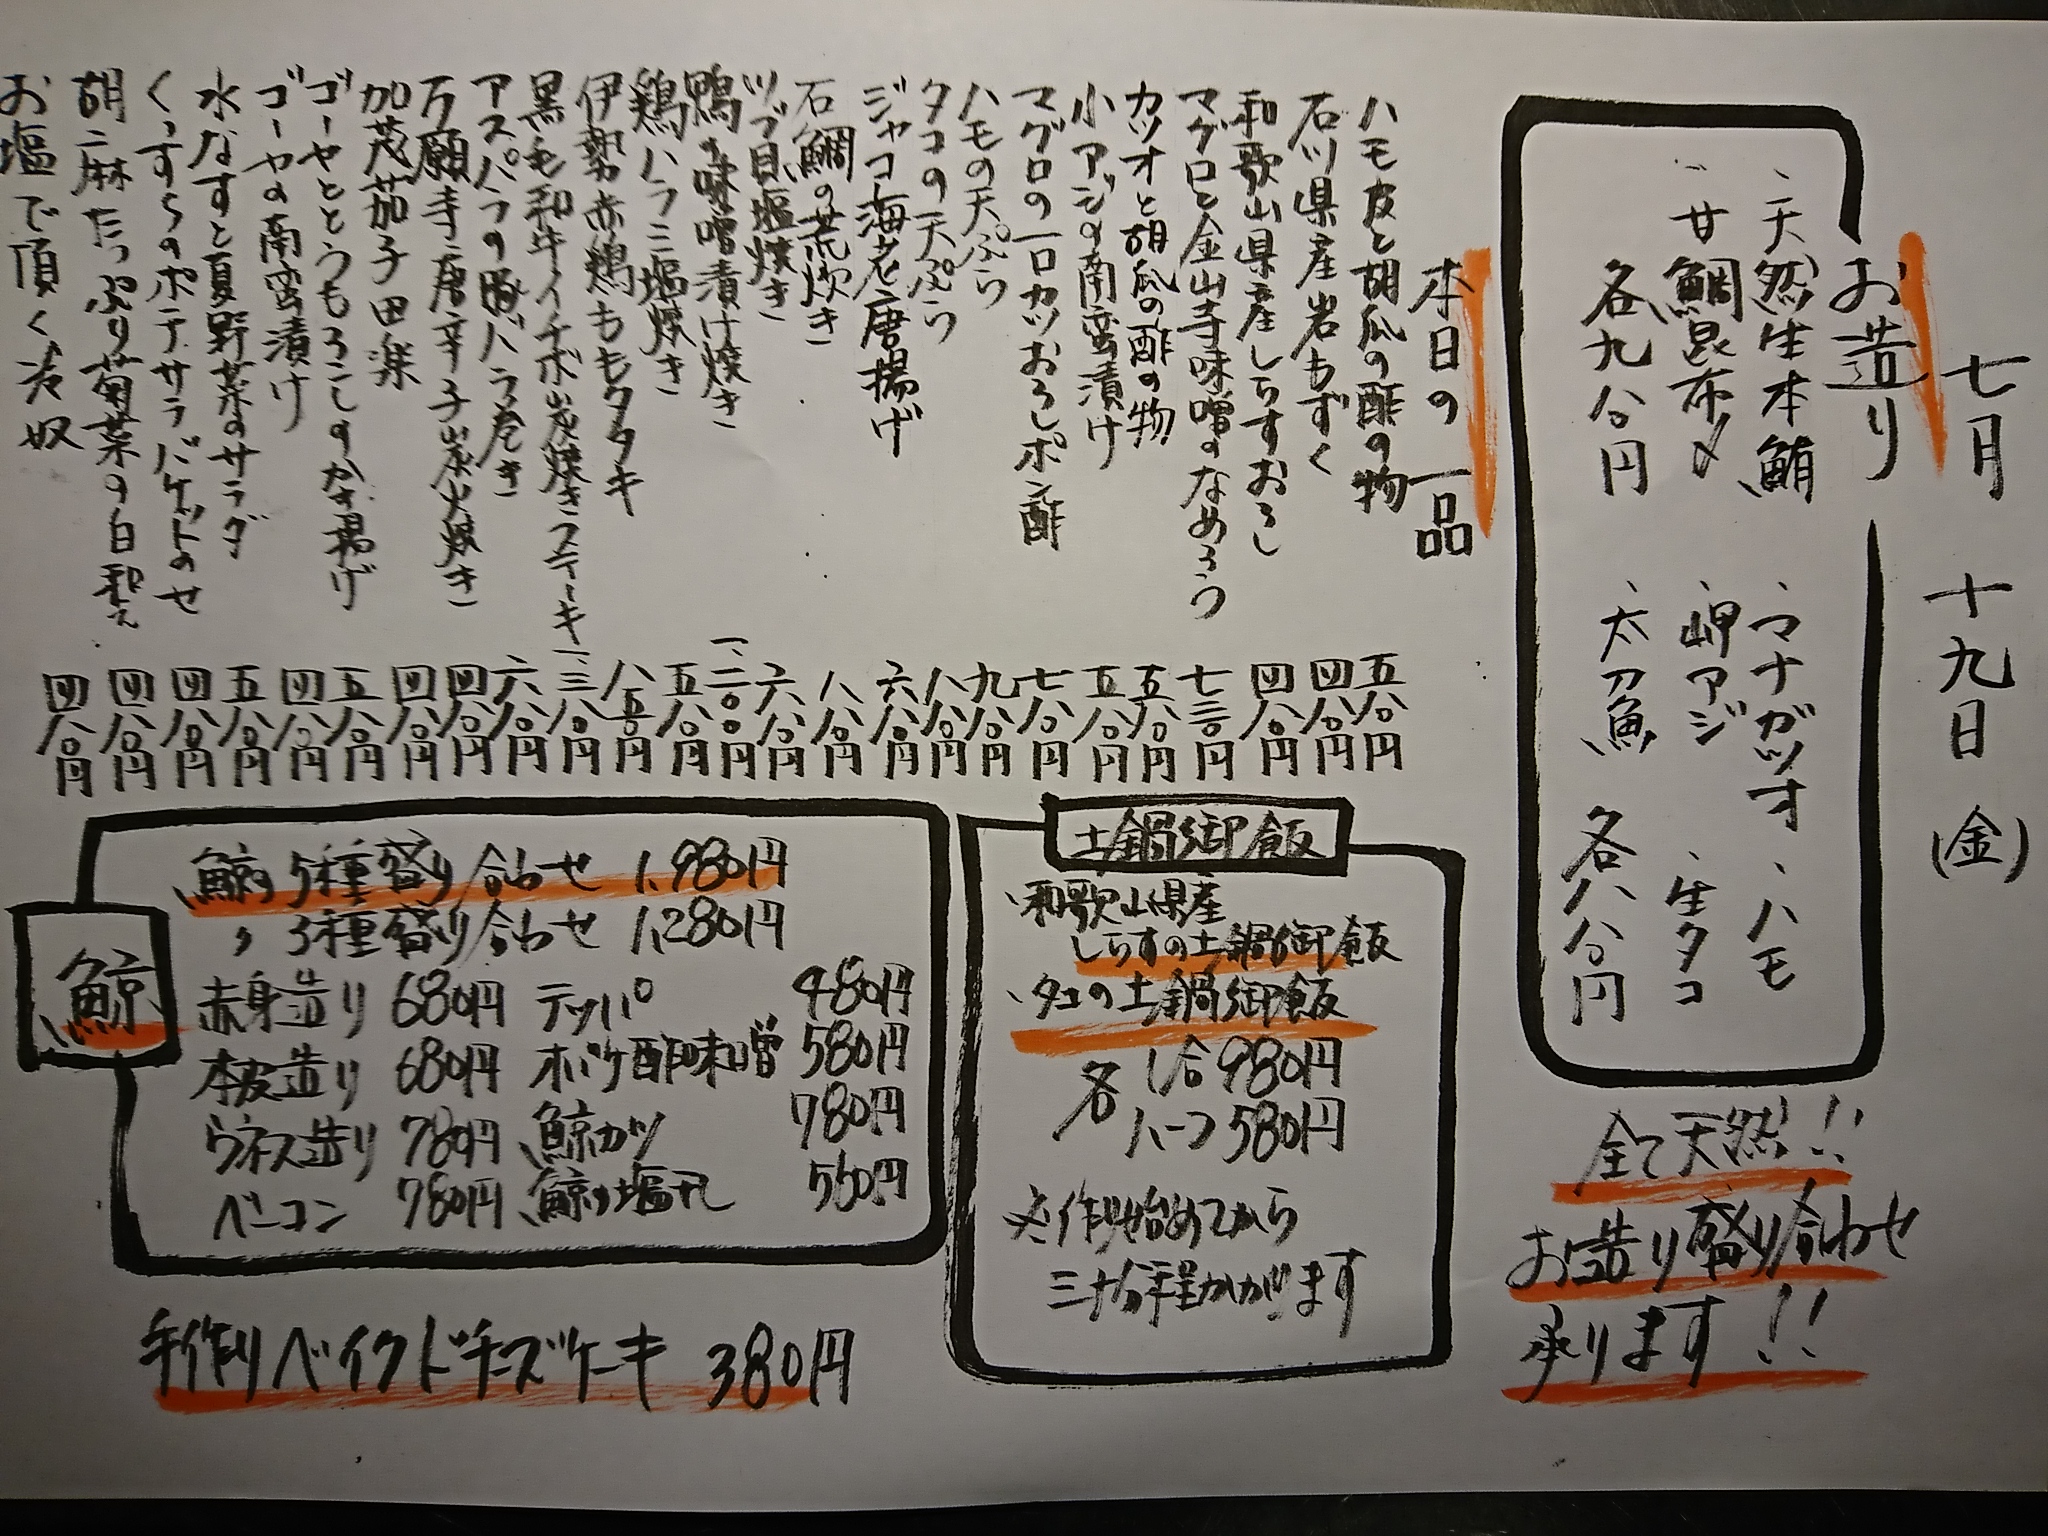 七月 十九日 (金)
お造り
、天然生本鮪 、マナガツオ 、ハモ
、甘鯛昆布〆 、岬アジ 、生タコ
各九八〇円 、太刀魚 各八八〇円
全て天然!!
お造り盛り合わせ
承ります!!
本日の一品
ハモ皮と胡瓜の酢の物 五八〇円
石川県産岩もずく 四八〇円
和歌山県産しらすおろし 四八〇円
マグロと金山寺味噌のなめろう 七三〇円
カツオと胡瓜の酢の物 五八〇円
小アジの南蛮漬け 五八〇円
マグロの一口カツおろしポン酢 七八〇円
ハモの天ぷら 九八〇円
タコの天ぷら 八八〇円
ジャコ海老唐揚げ 六八〇円
石鯛の荒炊き 八八〇円
ツブ貝塩焼き 六八〇円
鴨の味噌漬け焼き 一、二〇〇円
鶏ハラミ塩焼き 五八〇円
伊勢赤鶏ももタタキ 八五〇円
黒毛和牛イチボ炭焼きステーキ 一、三八〇円
アスパラの豚バラ巻き 六八〇円
万願寺唐辛子炭火焼き 四八〇円
加茂茄子田楽 四八〇円
ゴーヤととうもろこしのかき揚げ 五八〇円
ゴーヤの南蛮漬け 四八〇円
水なすと夏野菜のサラダ 五八〇円
くずもちのポテサラバケットのせ 四八〇円
胡麻たっぷり菊菜の白和え 四八〇円
お塩で頂く冷奴 四八〇円
土鍋御飯
、和歌山県産
しらすの土鍋御飯
、タコの土鍋御飯
各 1合980円
ハーフ580円
※作り始めてから
三十分程かかります
鯨
鯨の5種盛り合わせ 1,980円
〃 3種盛り合わせ 1,280円
赤身造り 680円 テッパ 480円
本皮造り 680円 オバケ酢味噌 580円
ウネス造り 780円 鯨カツ 780円
ベーコン 780円 鯨の塩干し 550円
手作りベイクドチーズケーキ 380円